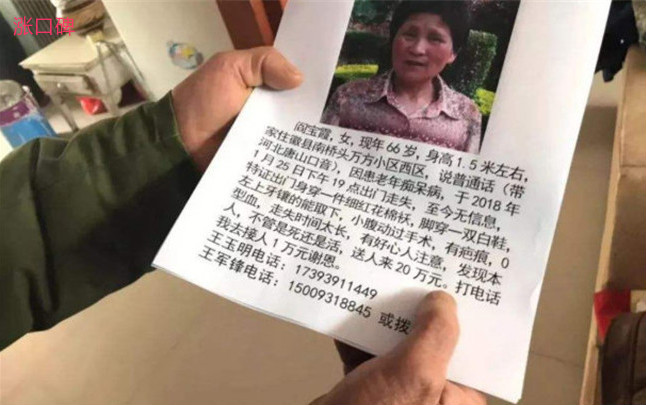 张口碑
阎宝霞，女，现年66岁，身高1.5米左右，
家住徽县南桥头万方小区西区，说普通话（带
河北唐山口音），因患老年痴呆病，于2018年
1月25日下午19点出门走失，至今无信息，
特证出门身穿一件细红花棉袄，脚穿一双白鞋，
左上牙镶的能取下，小腹动过手术，有疤痕，O
型血，走失时间太长，有好心人注意，发现本
人，不管是死还是活，送人来20万元。打电话
我去接人1万元谢恩。
王玉明电话：17393911449
王军锋电话：15009318845 或拨